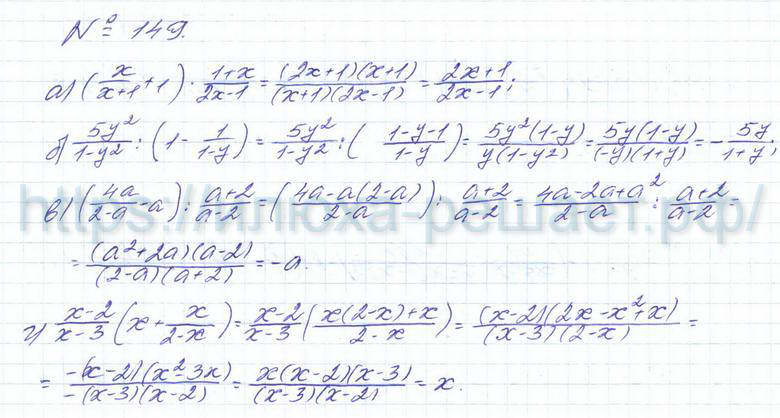 № 149.
а) (x/(x+1) + 1) · (1+x)/(2x-1) = ((2x+1)(x+1))/((x+1)(2x-1)) = (2x+1)/(2x-1);
б) 5y²/(1-y²) : (1 - 1/(1-y)) = 5y²/(1-y²) : ((1-y-1)/(1-y)) = (5y²(1-y))/(y(1-y²)) = (5y(1-y))/((-y)(1+y)) = - 5y/(1+y);
https://илюха-решает.рф/
в) (4a/(2-a) - a) : (a+2)/(a-2) = ((4a-a(2-a))/(2-a)) : (a+2)/(a-2) = (4a-2a+a²)/(2-a) : (a+2)/(a-2) =
= ((a²+2a)(a-2))/((2-a)(a+2)) = -a.
г) (x-2)/(x-3) (x + x/(2-x)) = (x-2)/(x-3) ((x(2-x)+x)/(2-x)) = ((x-2)(2x-x²+x))/((x-3)(2-x)) =
= (-(x-2)(x²-3x))/(-(x-3)(x-2)) = (x(x-2)(x-3))/((x-3)(x-2)) = x.